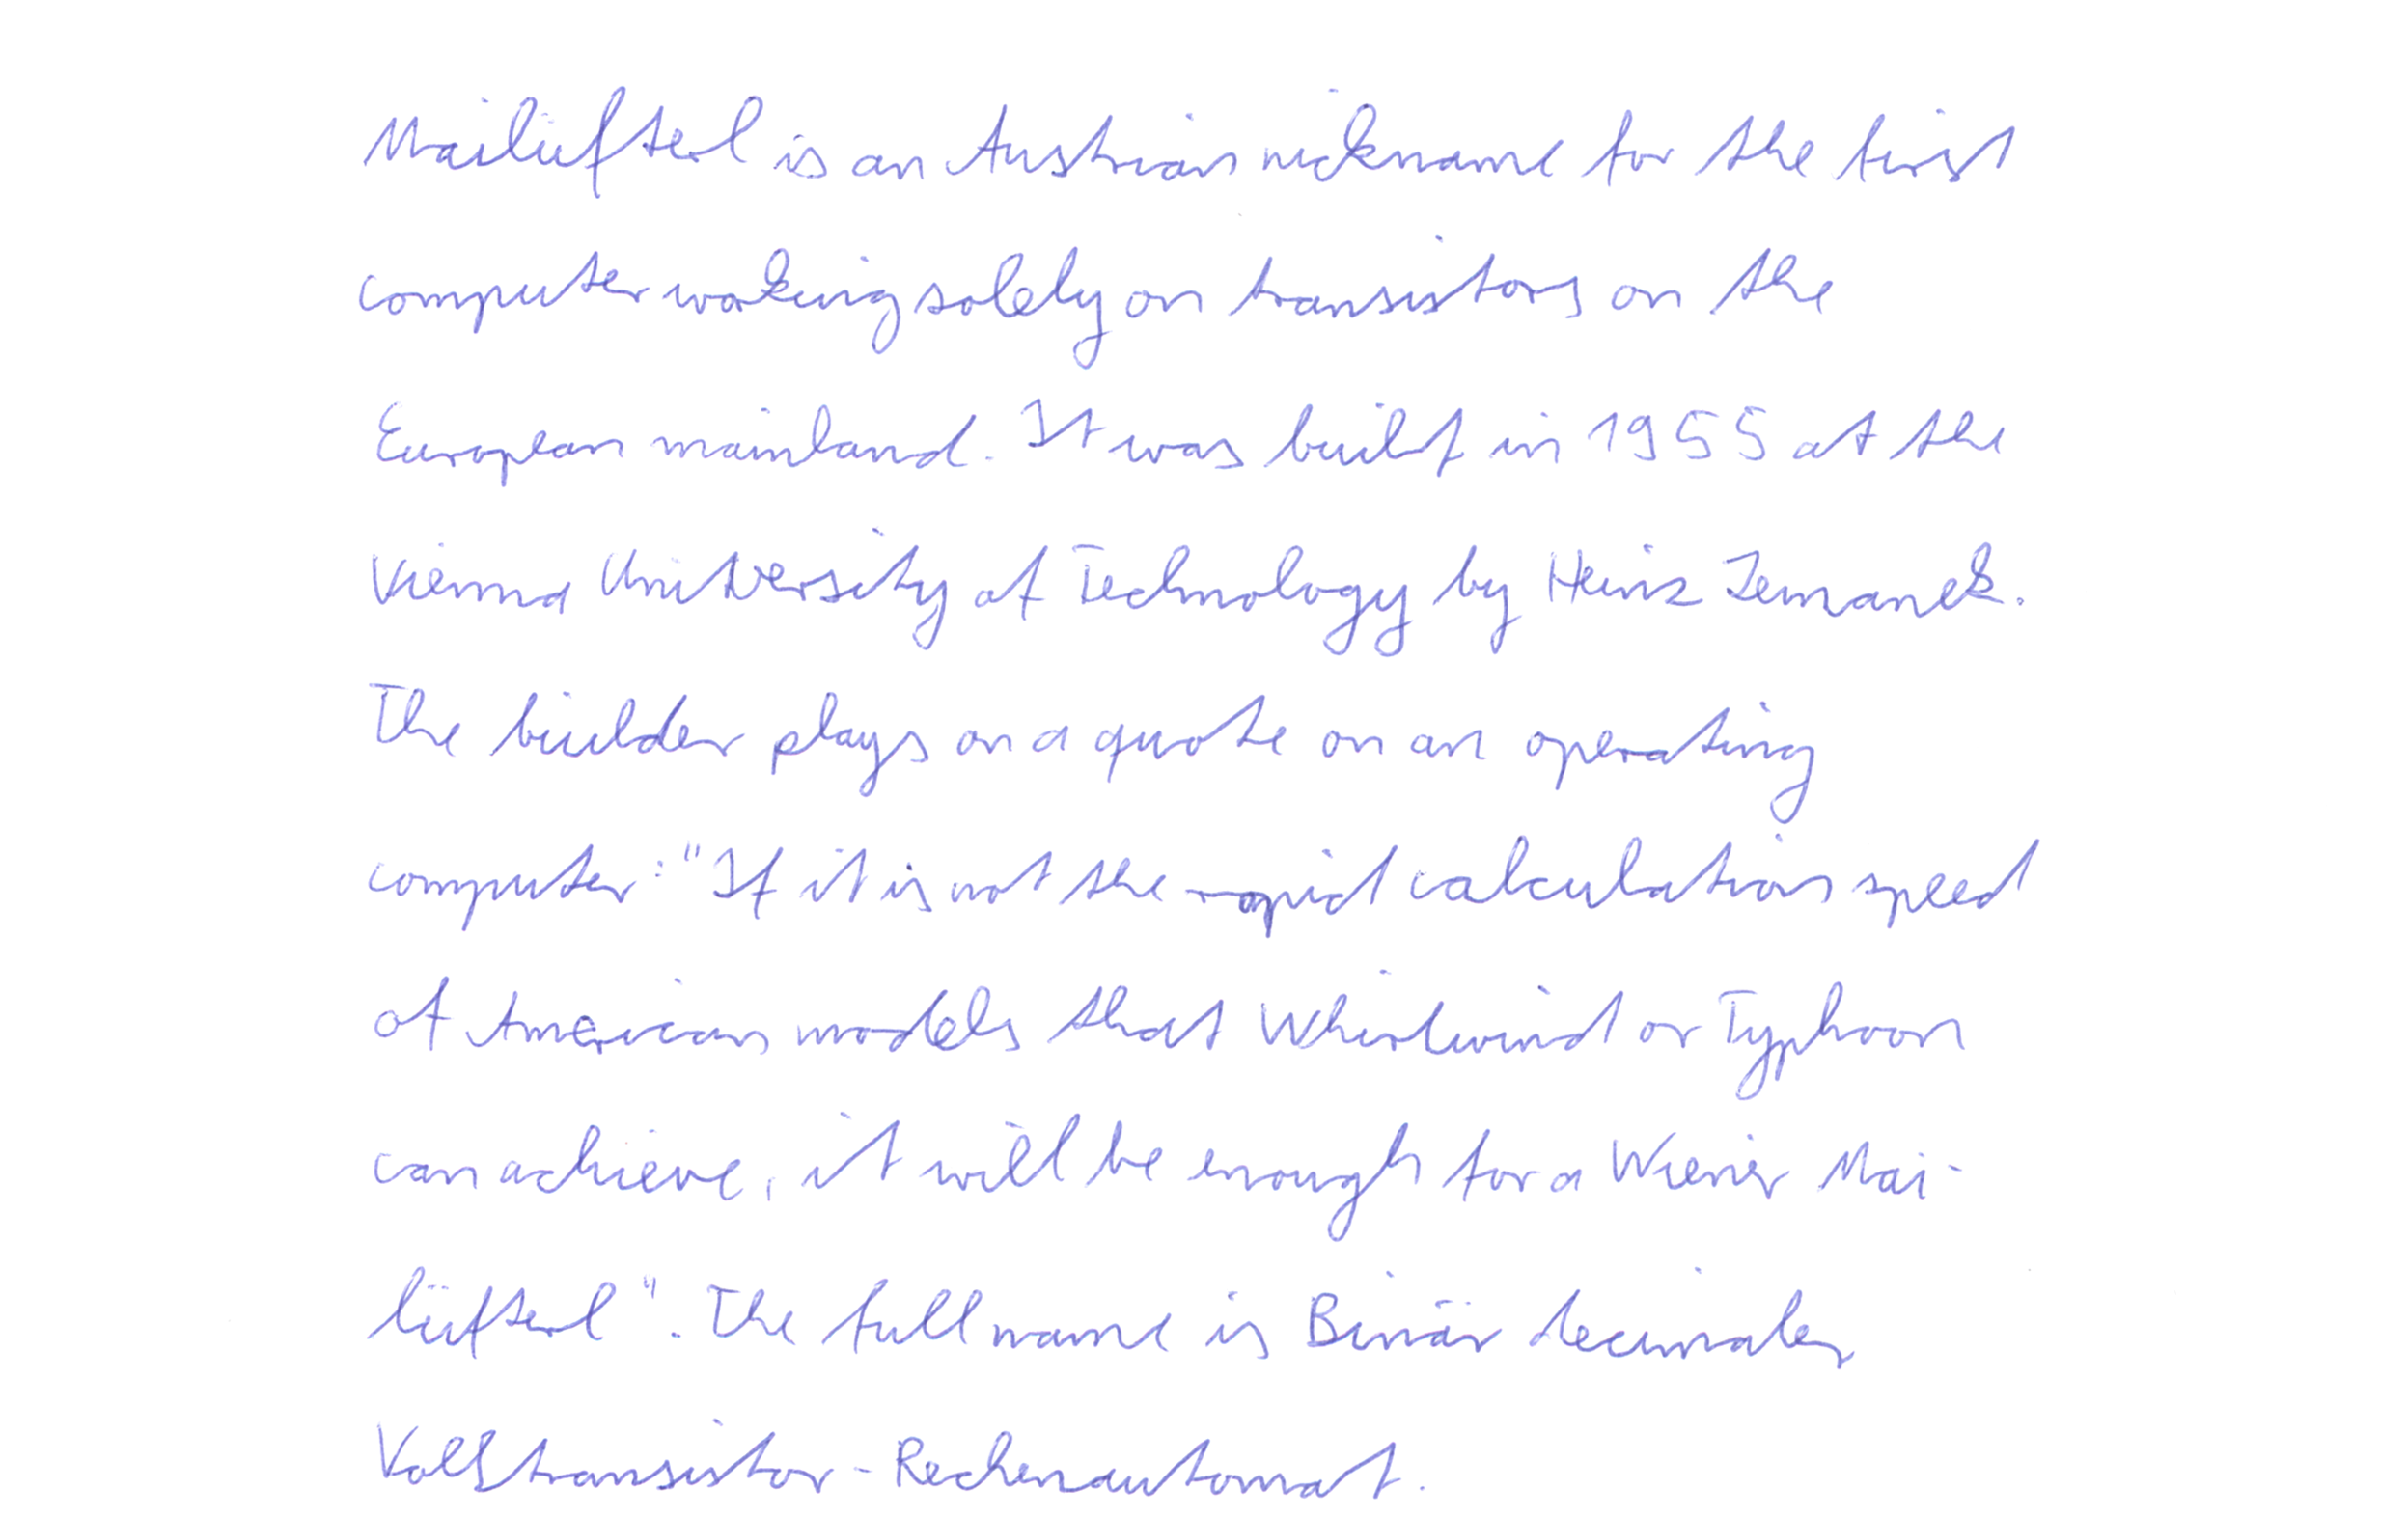 Mailüfterl is an Austrian nickname for the first
computer working solely on transistors on the
European mainland. It was built in 1955 at the
Vienna University of Technology by Heinz Zemanek.
The builder plays on a quote on an operating
computer: "If it is not the rapid calculation speed
of American models that Whirlwind or Typhoon
can achieve, it will be enough for a Wiener Mai-
lüfterl". The full name is Binär dezimaler
Volltransistor-Rechenautomat.